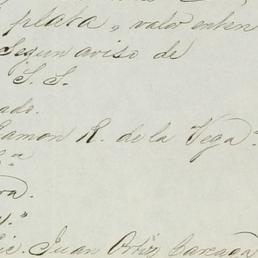 plata, valor enten
Segun aviso de
S. S.
ado.
Ramon R. de la Vega."
"a
ra.
"
ic. Juan Ortiz Careaga